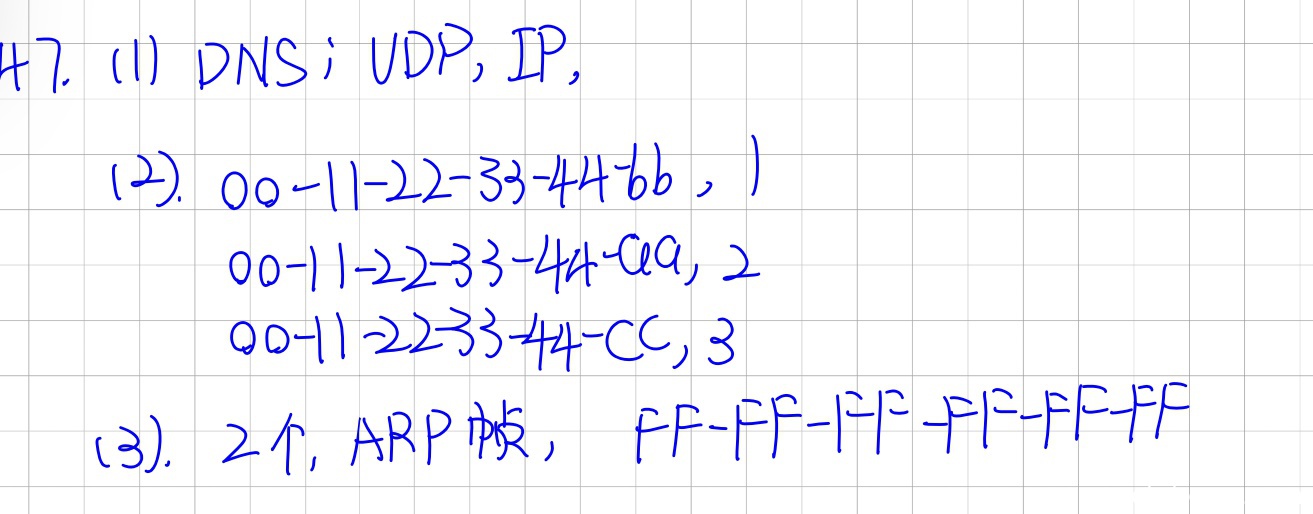 47. (1) DNS; UDP, IP,
(2). 00-11-22-33-44-bb, 1
00-11-22-33-44-aa, 2
00-11-22-33-44-CC, 3
(3). 2个, ARP帧, FF-FF-FF-FF-FF-FF